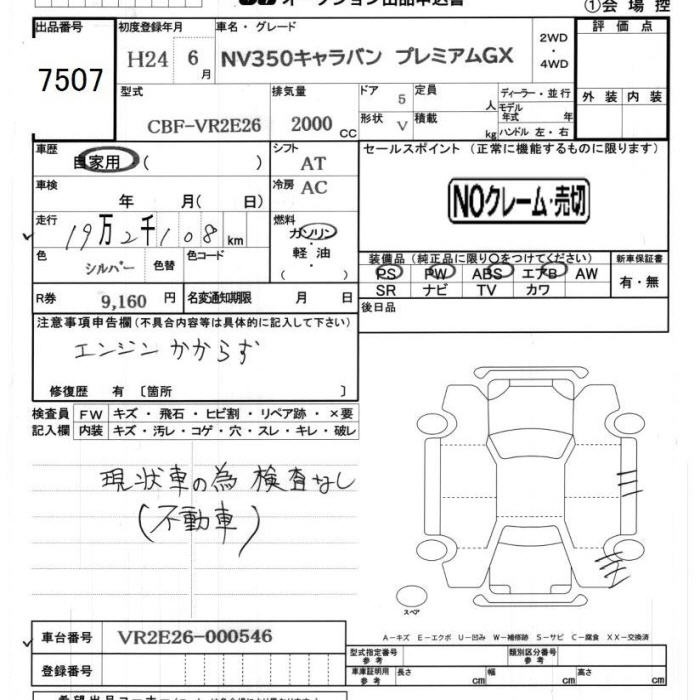 オークション出品申込書
①会場控
出品番号 初度登録年月 車名・グレード 評価点
7507 H24 6月 NV350キャラバン プレミアムGX 2WD・4WD
外装 内装
型式 排気量 ドア 定員 ディーラー・並行
CBF-VR2E26 2000cc 5 人 モデル年式 年
形状 V 積載 kg ハンドル 左・右
車歴 自家用 ( ) シフト AT セールスポイント (正常に機能するものに限ります)
車検 年 月( 日) 冷房 AC
NOクレーム・売切
走行 19万2千108km 燃料 ガソリン・軽油・( )
色 シルバー 色替 色コード
装備品(純正品に限り○をつけてください) 新車保証書
PS PW ABS エアB AW 有・無
SR ナビ TV カワ
R券 9,160円 名変通知期限 月 日
後日品
注意事項申告欄(不具合内容等は具体的に記入して下さい)
エンジンかからず
修復歴 有 〔箇所 〕
検査員 FW キズ・飛石・ヒビ割・リペア跡・×要
記入欄 内装 キズ・汚レ・コゲ・穴・スレ・キレ・破レ
現状車の為 検査なし
(不動車)
スペア
A-キズ E-エクボ U-凹み W-補修跡 S-サビ C-腐食 XX-交換済
車台番号 VR2E26-000546
型式指定番号 参考 類別区分番号 参考
登録番号
車庫証明用 参考 長さ cm 幅 cm 高さ cm
希望出品コーナー